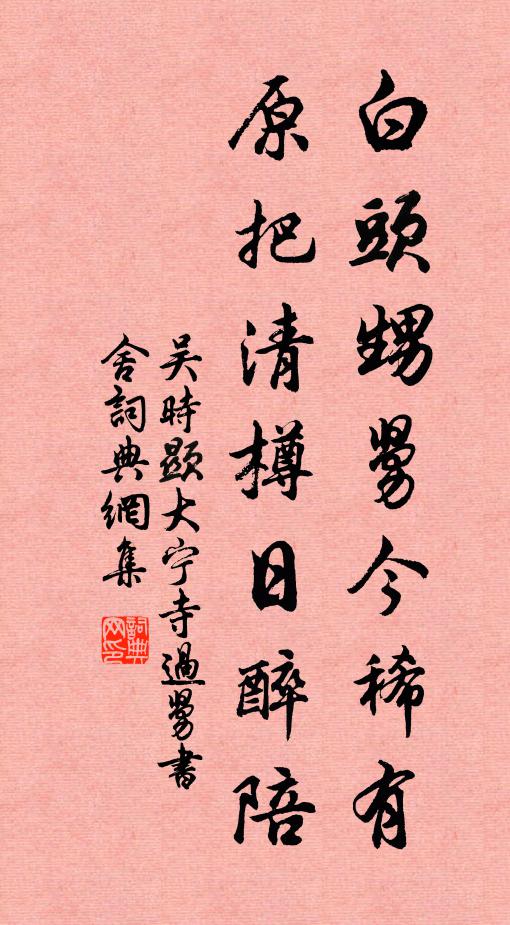 白頭甥舅今稀有
原把清樽日醉陪
吴時顯大宁寺過舅書
舍詞典網集
詞典
网印